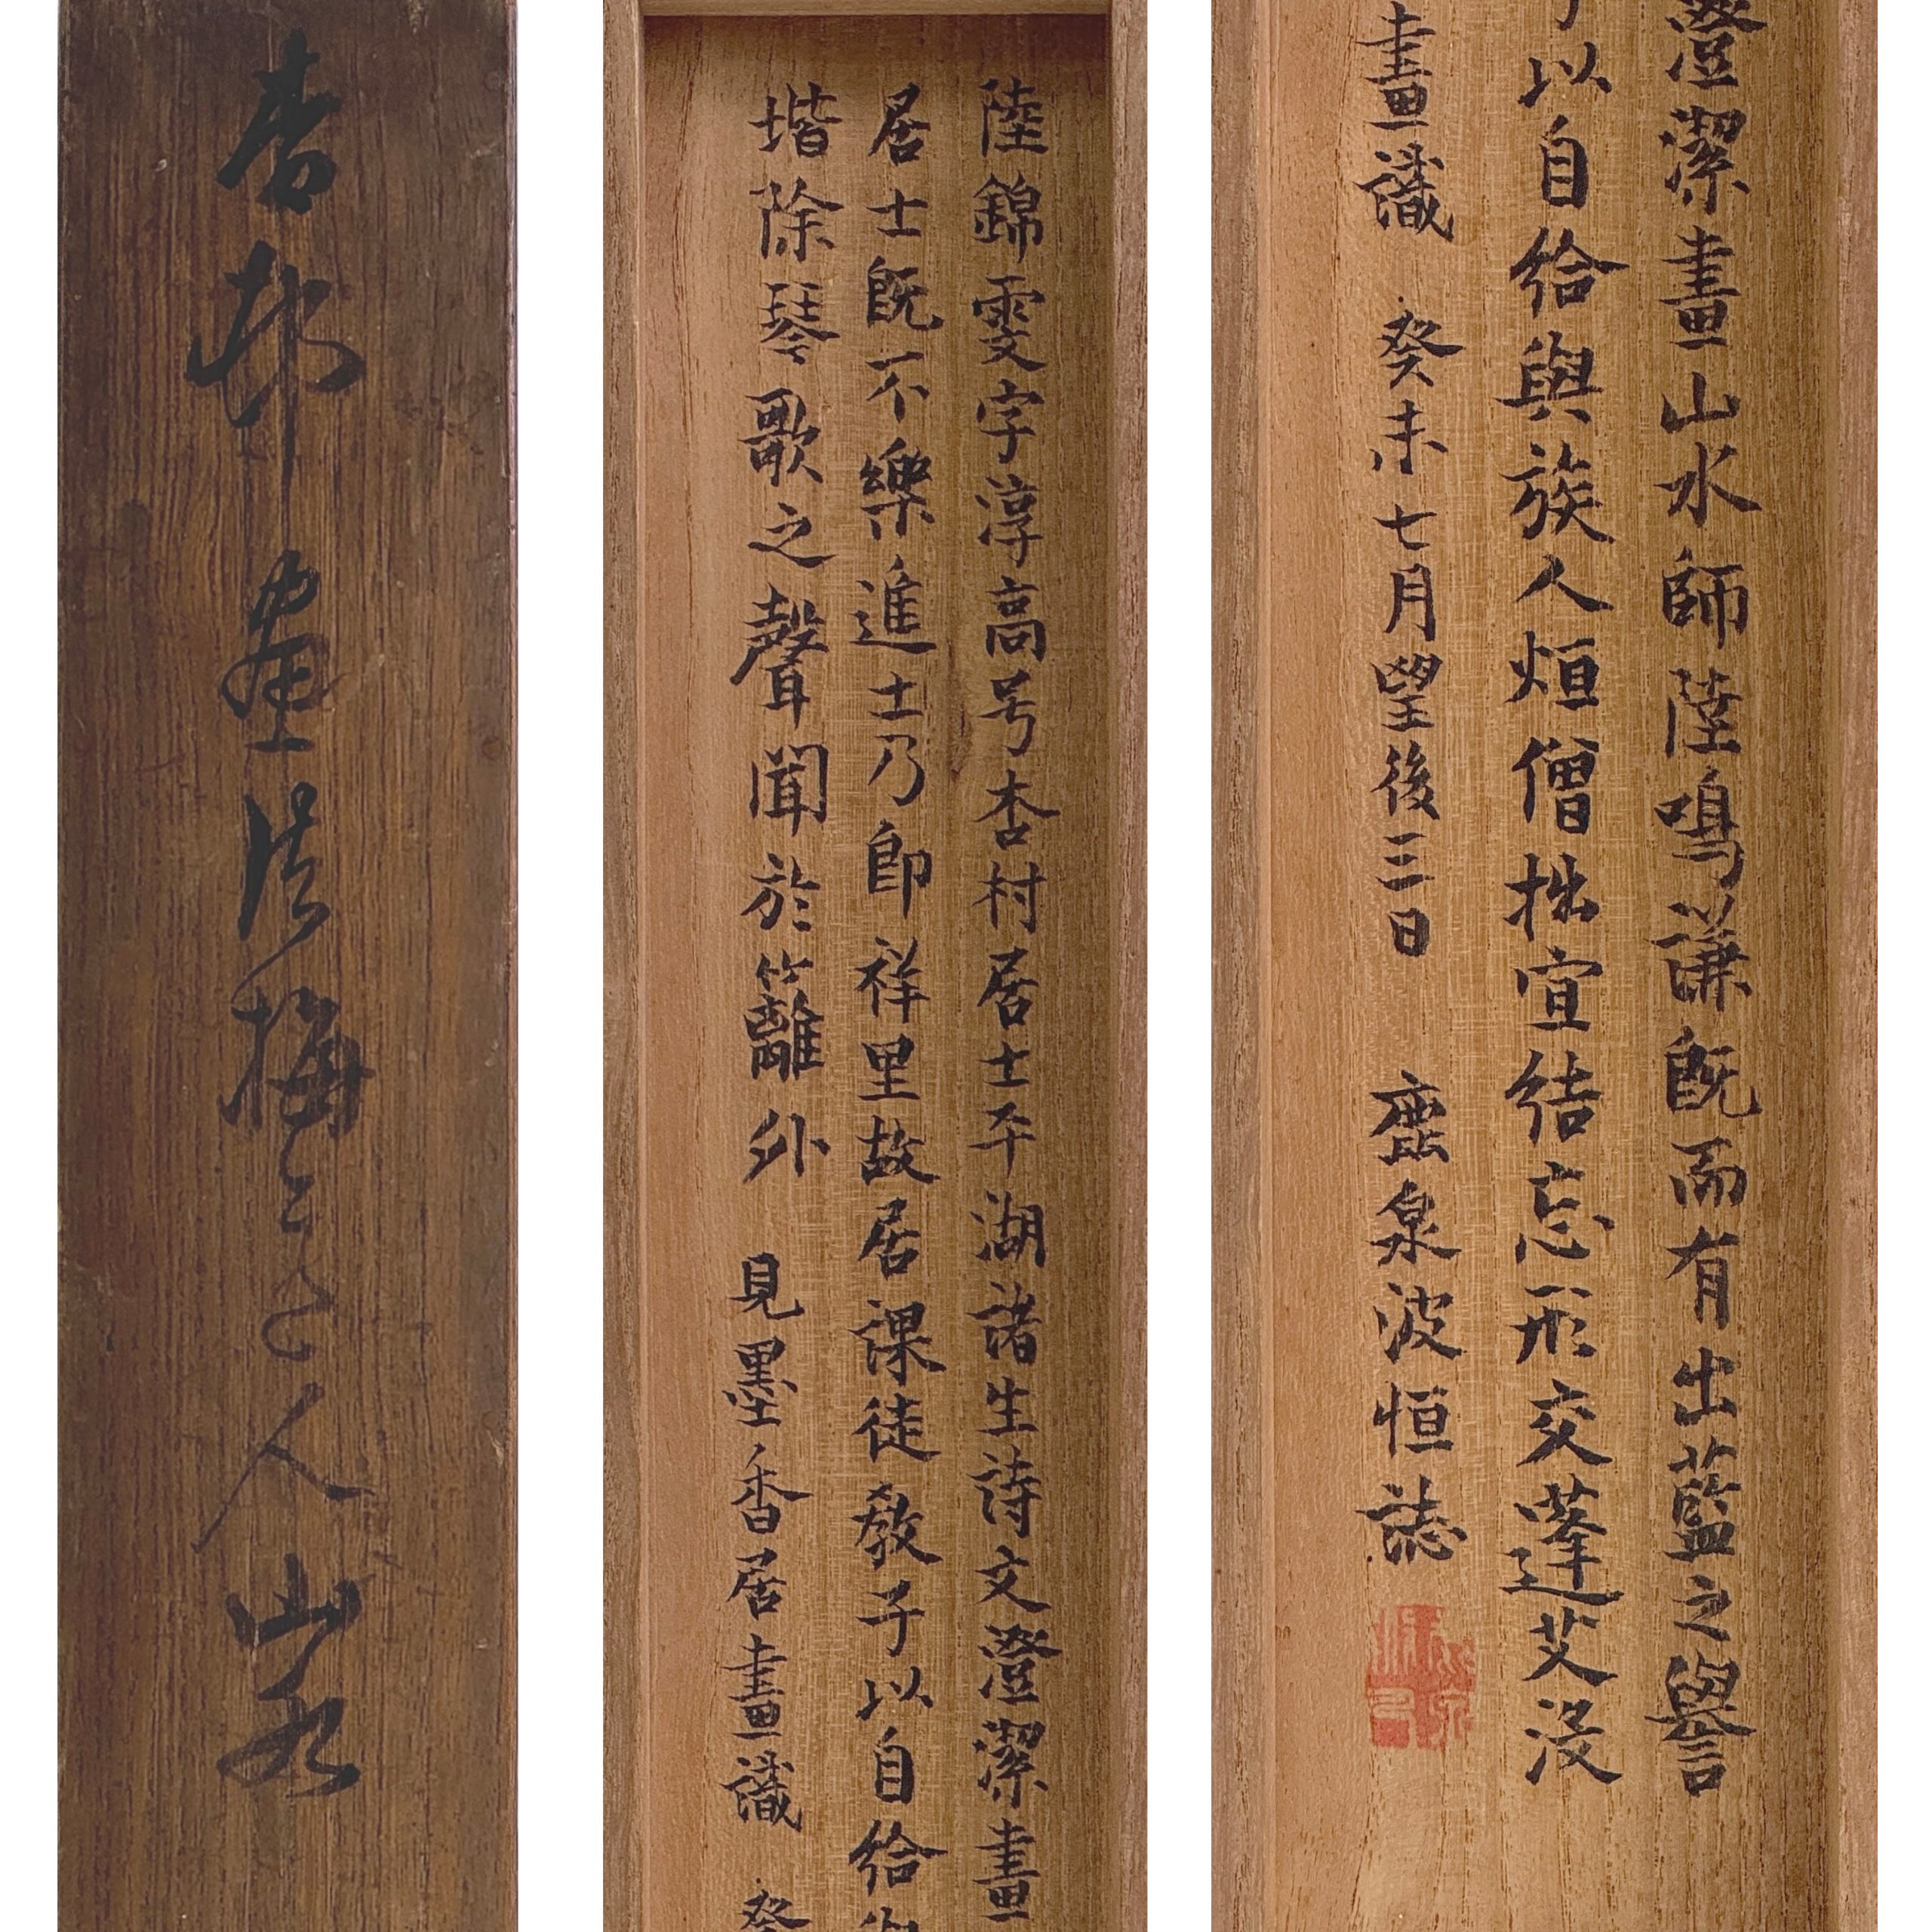 杏邨畫法梅道人山水
陸錦雯字淳高号杏村居士平湖諸生詩文澄潔畫
居士既不樂進士乃卽祥里故居課徒教子以自給與
堦除琴歌之聲聞於籬外　見墨香居畫識　癸
澄潔畫山水師陸鳴謙既而有出藍之譽
子以自給與族人烜僧拙宜結忘形交蓬艾没
畫識　癸未七月望後三日　鹿泉波恒誌